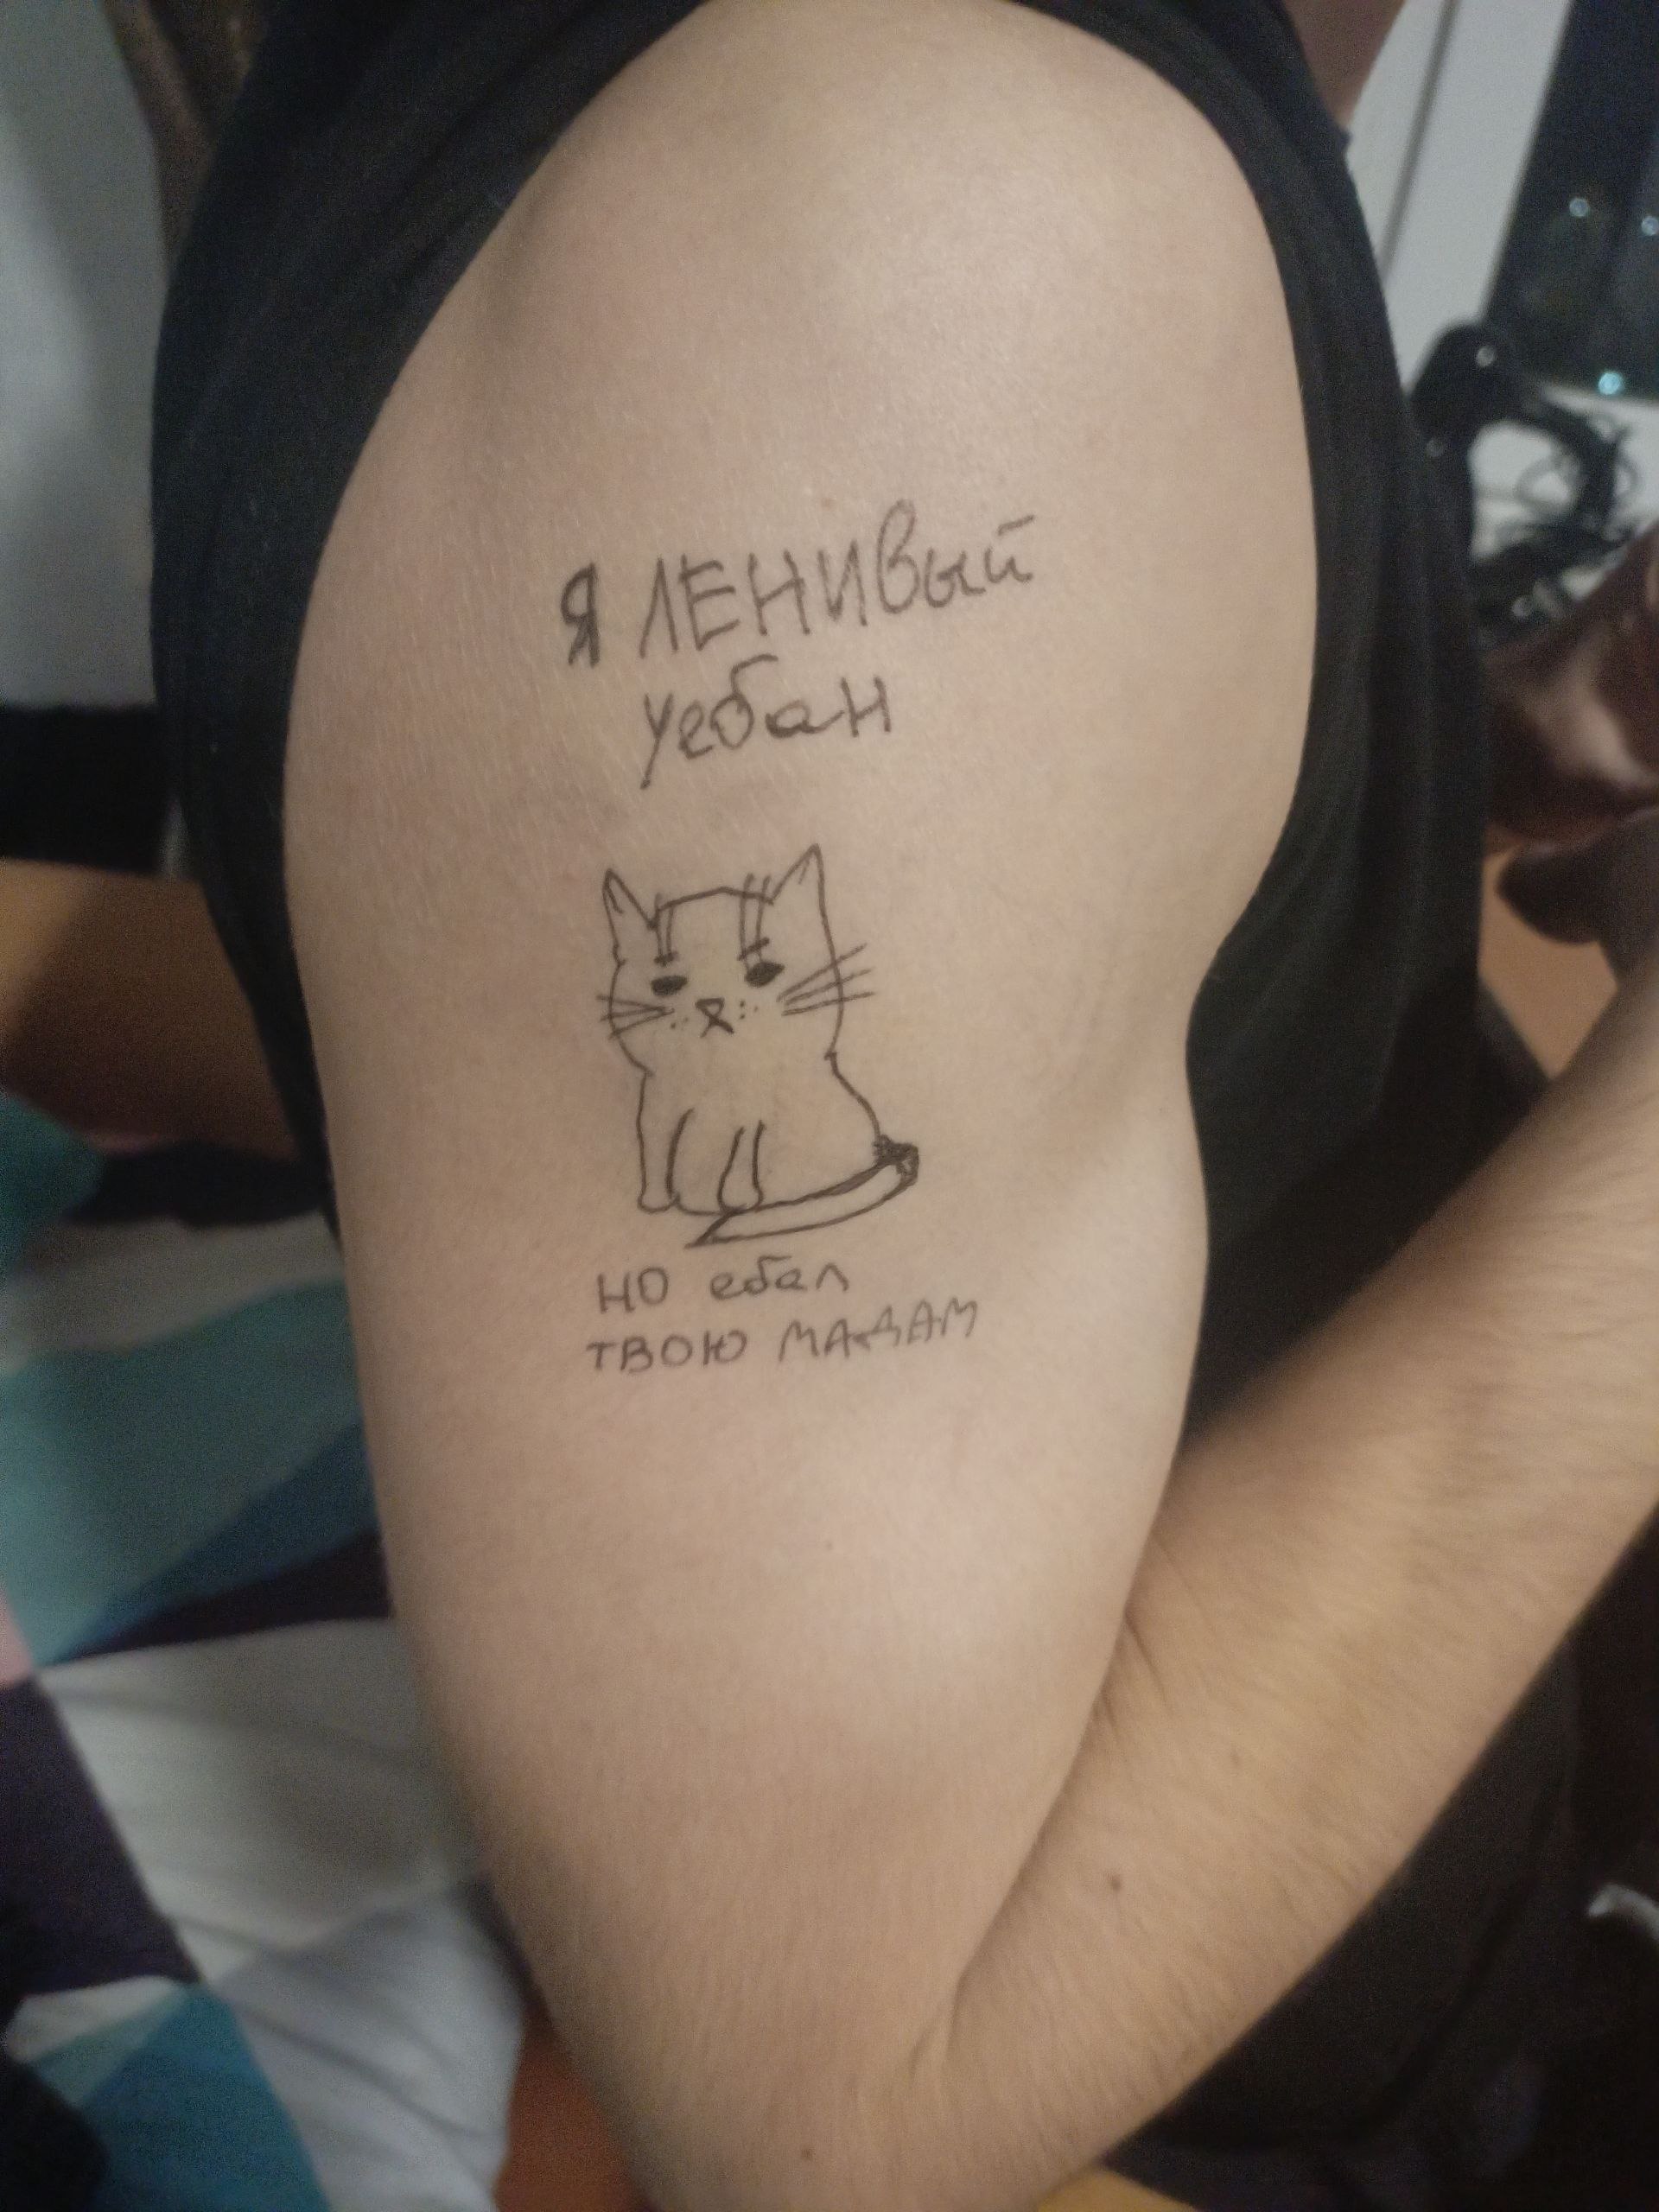 Я ЛЕНИВый
уебан
НО ебал
ТВОЮ МАДАМ